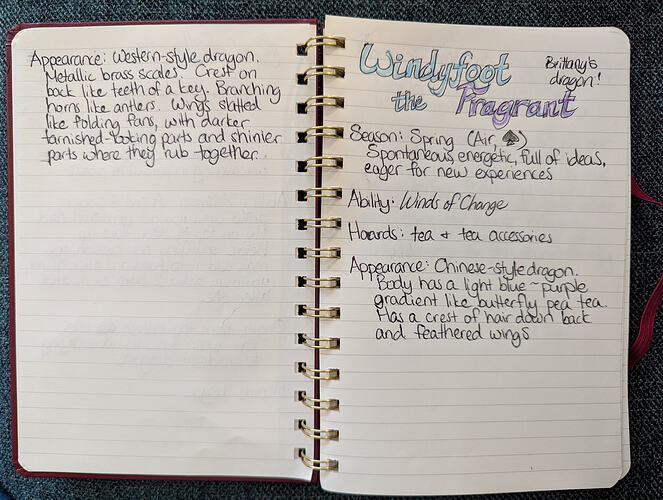 Appearance: Western-style dragon.
Metallic brass scales. Crest on
back like teeth of a key. Branching
horns like antlers. Wings slatted
like folding fans, with darker
tarnished-looking parts and shinier
parts where they rub together.
Windyfoot
the Fragrant
Brittany's
dragon!
Season: Spring (Air ♠)
Spontaneous, energetic, full of ideas,
eager for new experiences
Ability: Winds of Change
Hoards: tea + tea accessories
Appearance: Chinese-style dragon.
Body has a light blue ~ purple
gradient like butterfly pea tea.
Has a crest of hair down back
and feathered wings